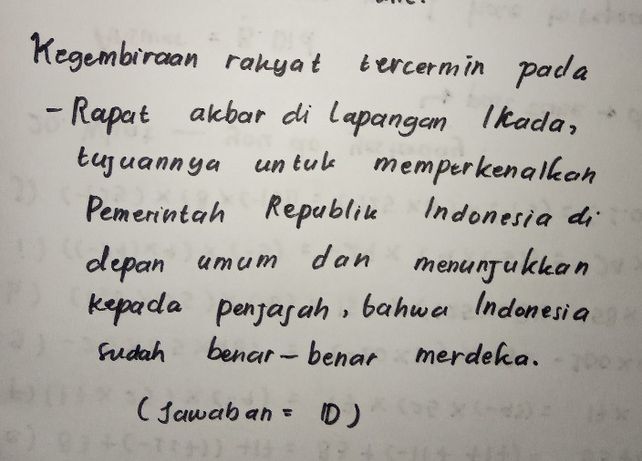 Kegembiraan rakyat tercermin pada
- Rapat akbar di lapangan Ikada,
tujuannya untuk memperkenalkan
Pemerintah Republik Indonesia di
depan umum dan menunjukkan
kepada penjajah, bahwa Indonesia
sudah benar-benar merdeka.
(Jawaban = D)